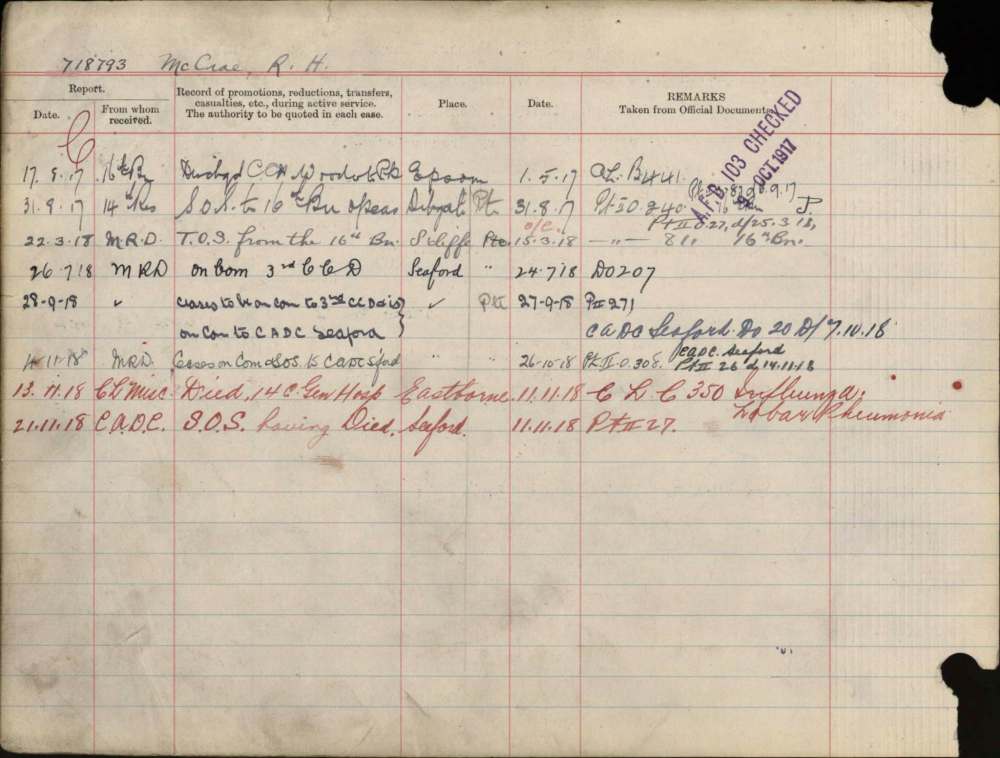 718793 McCrae, R. H.
Report.
Date.
From whom received.
Record of promotions, reductions, transfers, casualties, etc., during active service. The authority to be quoted in each case.
Place.
Date.
REMARKS Taken from Official Documents.
A.F.B. 103 CHECKED
OCT 1917
17. 5. 17 16th Bn C.C.H. Woodcote Pk Epsom 1. 5. 17 C.L. B441.
31. 9. 17 14th Res S.O.S. to 16th Bn o'seas Dibgate Pte 31. 8. 17 Pt II O 240
o/c. Pt II O 27, d/25. 3. 18,
22. 3. 18 M.R.D. T.O.S. from the 16th Bn. Pte 15. 3. 18 — " — 16th Bn.
26 7 18 MRD on Com 3rd C C D Seaford " 24. 7 18 DO 207
28-9-18 " ceases to be on com to 3rd CCD & is " Pte 27-9-18 Pt II 271
on Com to C A D C Seaford CADC Seaford Do 20 D/ 7.10.18
4-11-18 MRD. Ceases on Com & SOS to CADC S'ford " " 26-10-18 Pt II O. 308. CADC. Seaford
Pt II 26 d/ 14.11.18
13. 11. 18 CL Misc Died, 14 C. Gen Hosp Eastborne 11. 11. 18 C L C 350 Influenza;
Lobar Pneumonia
21. 11. 18 C.A.D.C. S.O.S. having Died. Seaford. 11. 11. 18 Pt II 27.